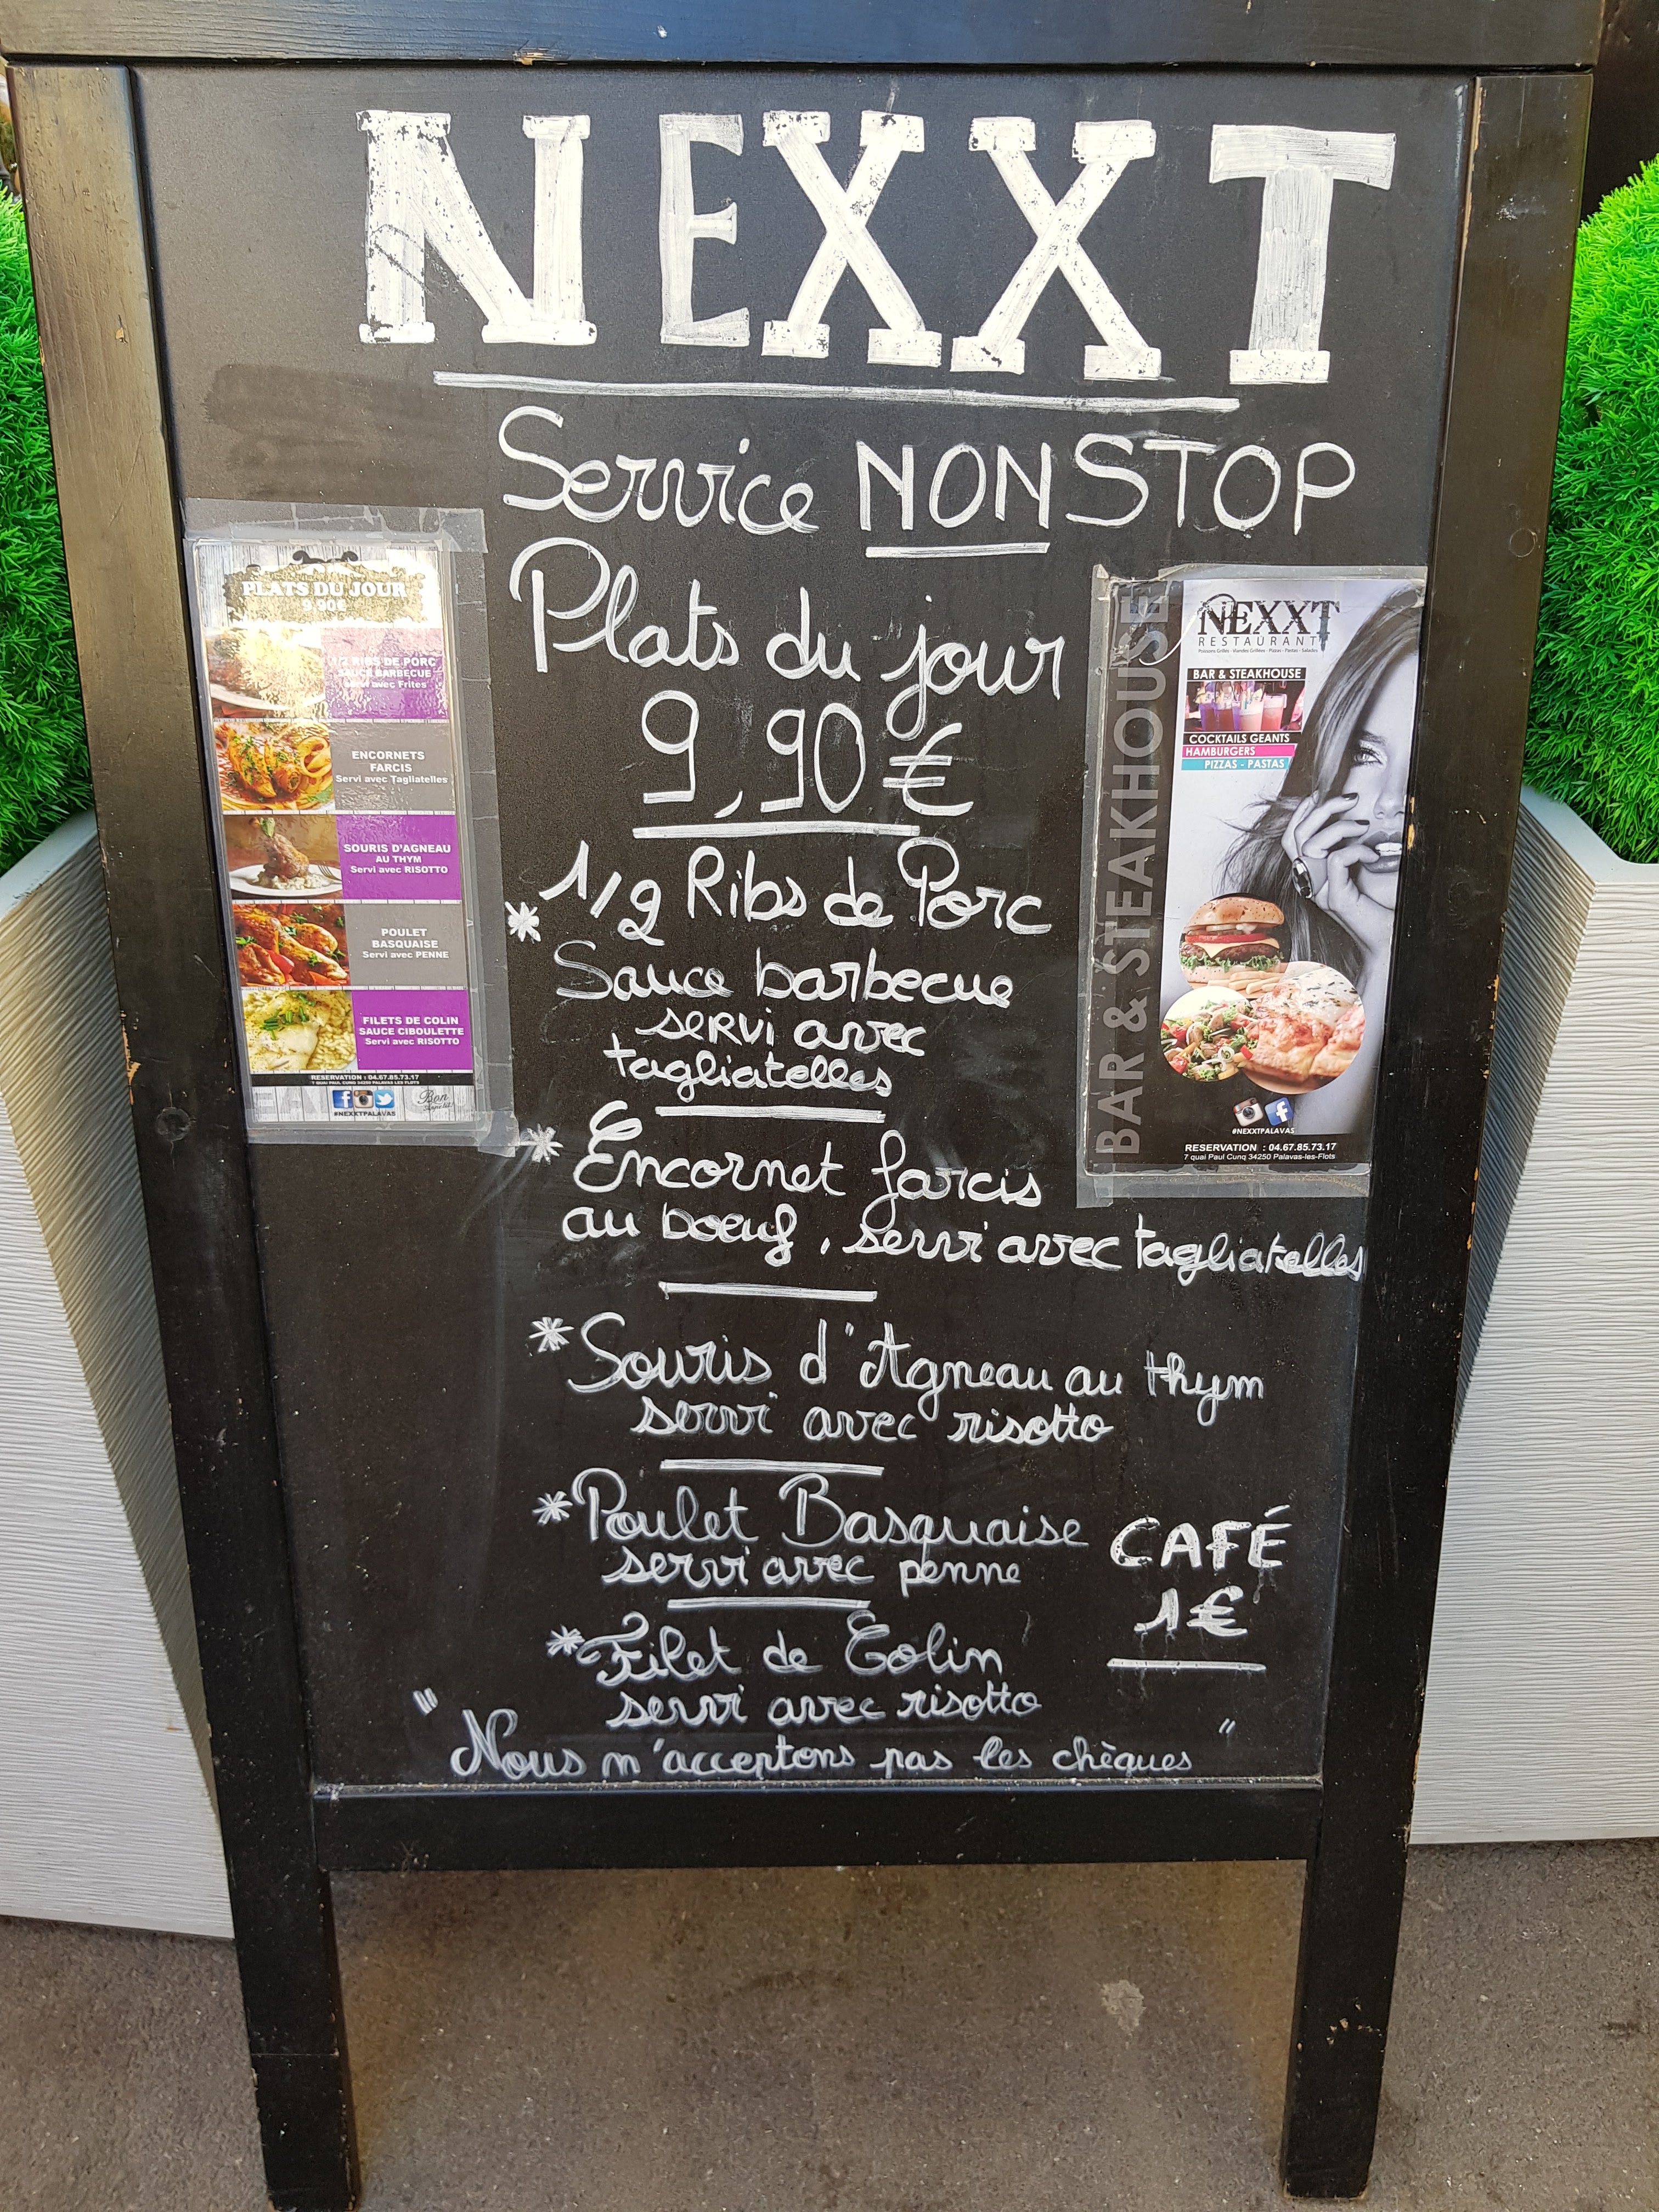 NEXXT
Service NON STOP
Plats du jour
9,90€
* 1/2 Ribs de Porc
Sauce barbecue
servi avec
tagliatelles
* Encornet farcis
au boeuf, servi avec tagliatelles
* Souris d'Agneau au thym
servi avec risotto
* Poulet Basquaise
servi avec penne
* Filet de Colin
servi avec risotto
"Nous n'acceptons pas les chèques"
CAFÉ
1€
PLATS DU JOUR
9.90€
1/2 RIBS DE PORC
SAUCE BARBECUE
Servi avec Frites
ENCORNETS
FARCIS
Servi avec Tagliatelles
SOURIS D'AGNEAU
AU THYM
Servi avec RISOTTO
POULET
BASQUAISE
Servi avec PENNE
FILETS DE COLIN
SAUCE CIBOULETTE
Servi avec RISOTTO
RESERVATION : 04.67.85.73.17
7 QUAI PAUL CUNQ 34250 PALAVAS LES FLOTS
#NEXXTPALAVAS
Bon
BAR & STEAKHOUSE
NEXXT
RESTAURANT
Poissons Grillés - Viandes Grillées - Pizzas - Pastas - Salades
BAR & STEAKHOUSE
COCKTAILS GEANTS
HAMBURGERS
PIZZAS - PASTAS
#NEXXTPALAVAS
RESERVATION : 04.67.85.73.17
7 quai Paul Cunq 34250 Palavas-les-Flots